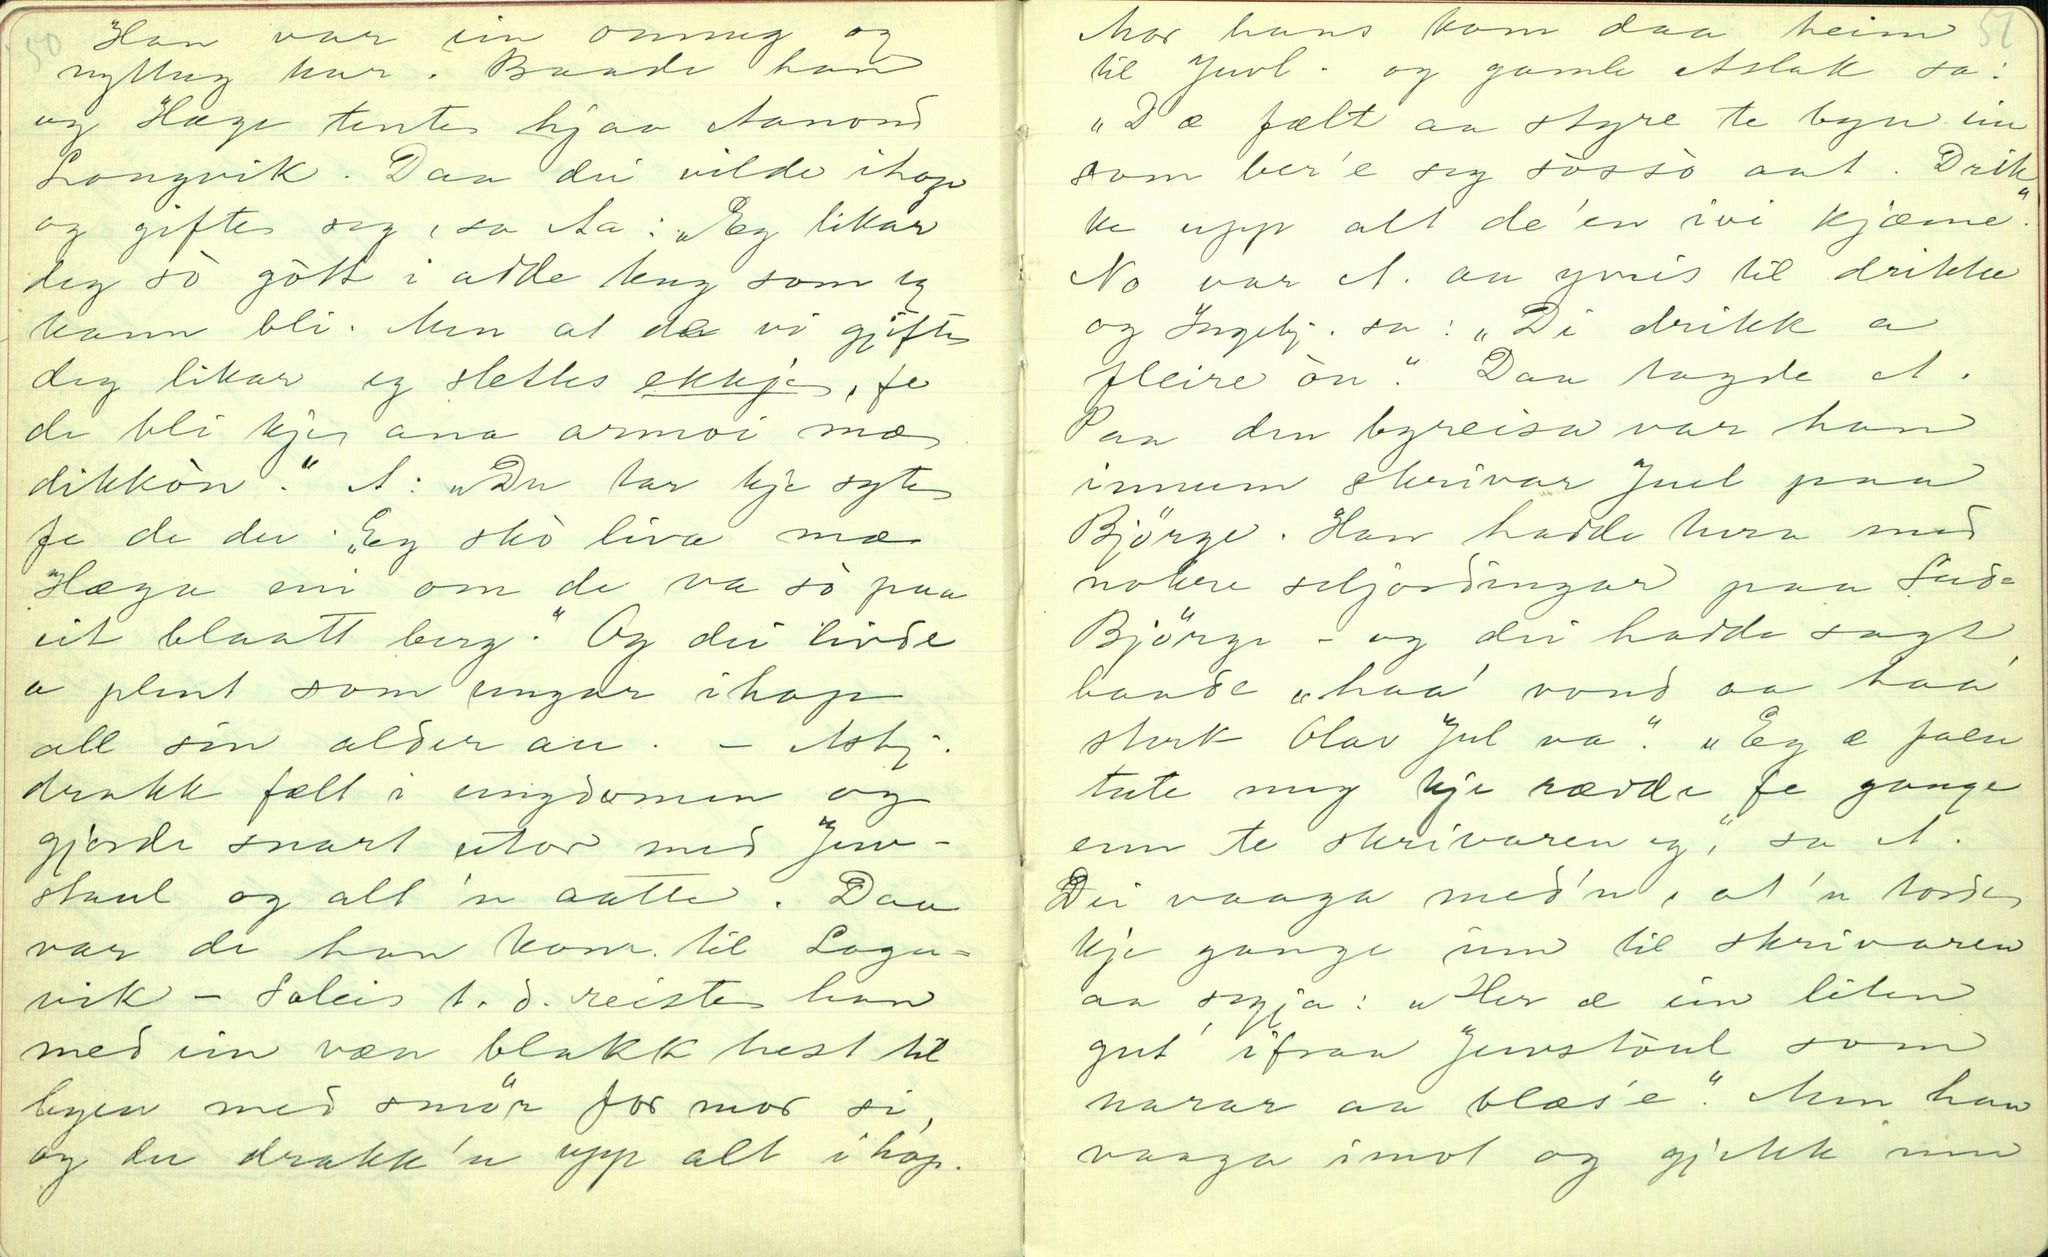 50
Han var ein onnug og
nyttug kar. Baade han
og Hæge tente hjaa Aanond
Longvik. Daa dei vilde ihop
og gifte seg, sa Aa: „Eg likar
deg sò gòtt i adde ting som eg
kann bli. Men at de vi gjifte
deg likar eg slettes ekkje, fe
de bli kje ana armoi mæ
dikkòn." A: „Du tar kje syte
fe de du. „Eg skò liva mæ
Hæga mi om de va sò paa
eit blaatt berg." Og dei livde
a plent som ungar ihop
all sin alder au. – Asbj.
drakk fælt i ungdomen og
gjorde snart utor med Juv-
staul og alt 'n aatte. Daa
var de han kom til Logn=
vik – Soleis t. d. reiste han
med ein væn blakk hest til
byen med smör for mor si,
og du drakk'n upp alt ihop.
51
Mor hans kom daa heim
til Juvl. og gamle Aslak sa:
„D æ fælt aa styre te byn ein
som ber'e seg sòssò aat. Drik
ke upp alt de'en ivi kjæme".
No var A. au yvris til drikke
og Ingebj. sa: „Di drikk a
fleire òn." Daa tagde A.
Paa den byreisa var han
innum skrivar Juel paa
Björge. Han hadde vera med
nokre seljordingar paa Sud=
Björge – og dei hadde sagt,
baade „haa' vond aa haa'
sterk Olav Jul va". „Eg æ faen
tute meg kje rædde fe gange
enn te skrivaren eg," sa A.
Dei vaaga med'n, at 'n torde
kje gange inn til skrivaren
aa segja: „Her æ ein liten
gut ifraa Juvstòul som
narar aa blæs'e". Men han
vaaga imot og gjekk inn